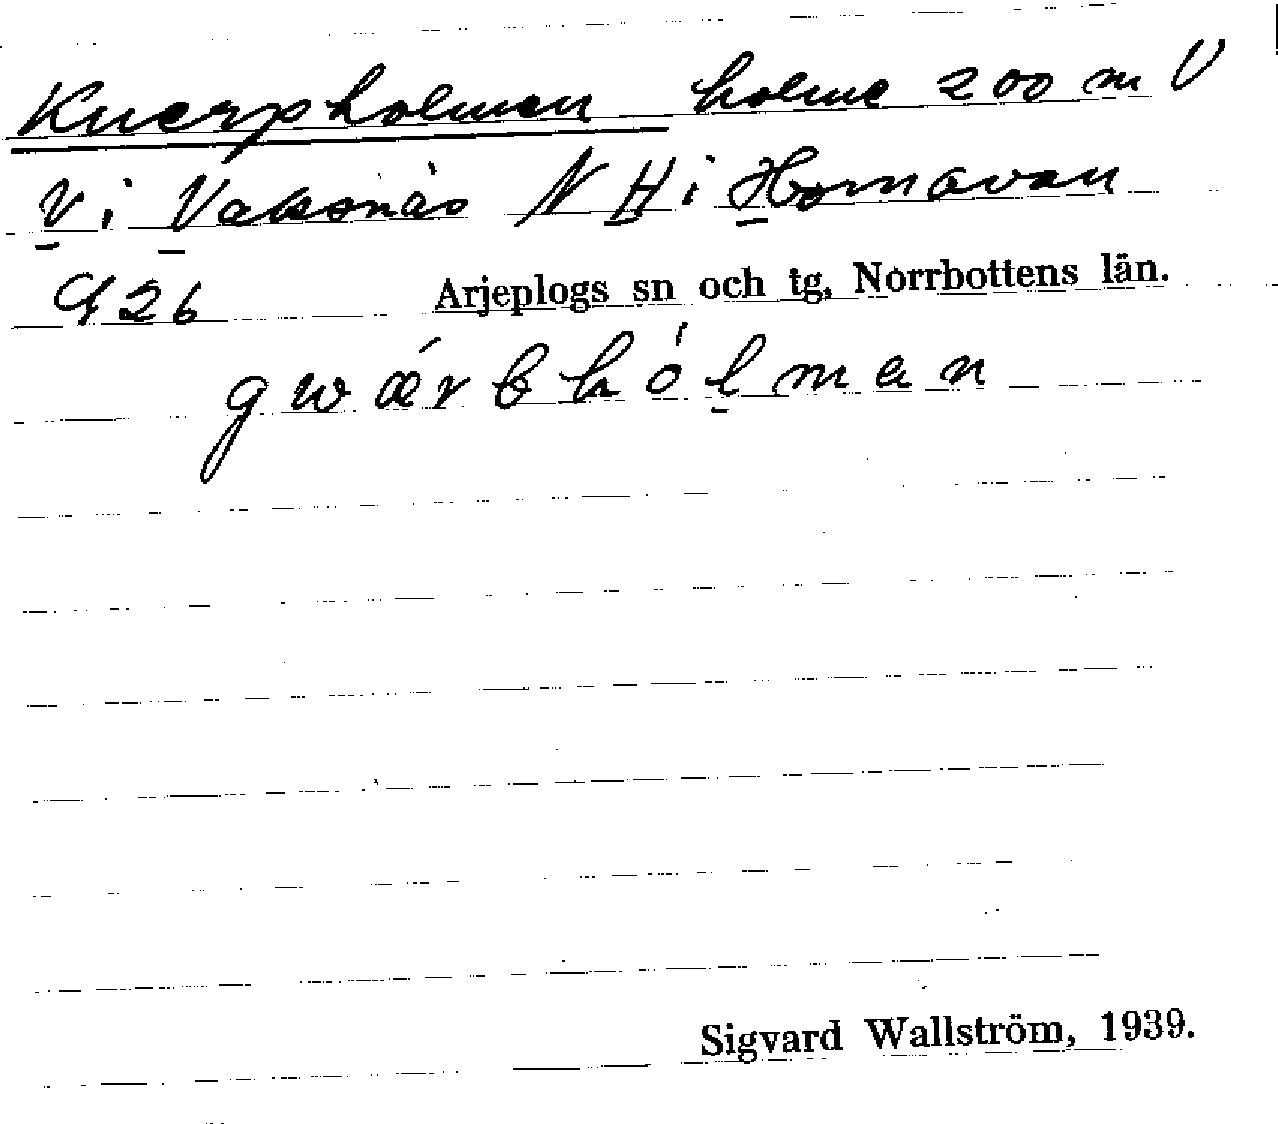 Kuerpholmen holme 200 m V
V i Vaksnäs N H i Hornavan
G26 Arjeplogs sn och tg, Norrbottens län.
gwærbhólman
Sigvard Wallström, 1939.